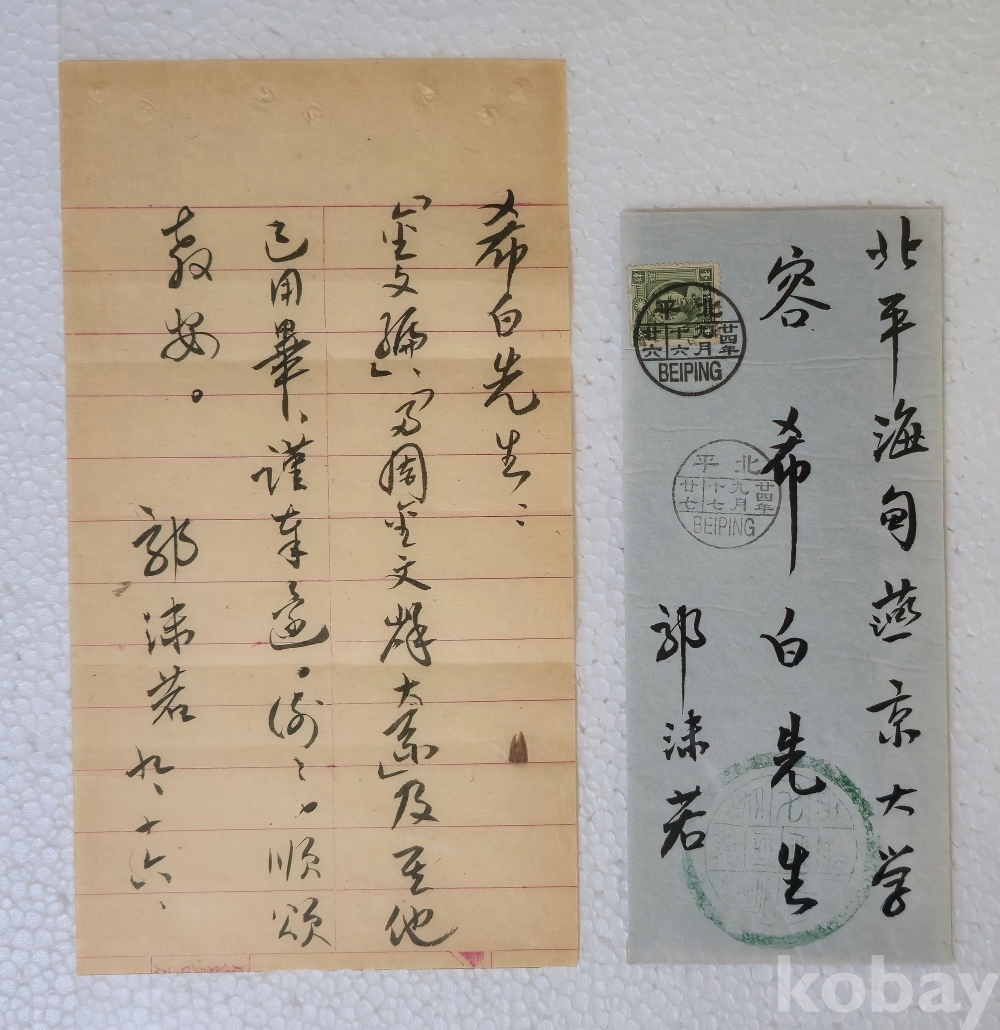 希白先生：
「金文編」、「两周金文辞大系」及其他
已用畢、謹奉還。谢々，順頌
教安。
郭沫若 九、十六、
北平海甸燕京大学
容希白先生
郭沫若
北平
廿四年 九月 十六 廿六
BEIPING
北平
廿四年 九月 十七 廿七
BEIPING
kobay